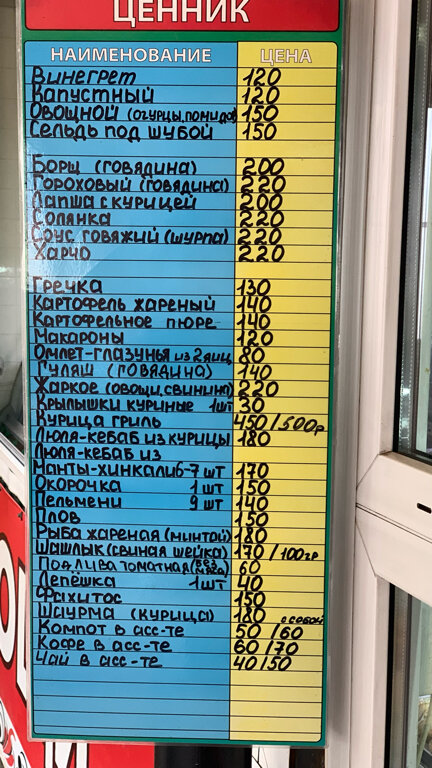 ЦЕННИК
НАИМЕНОВАНИЕ ЦЕНА
Винегрет 120
Капустный 120
Овощной (огурцы,помидо) 150
Сельдь под шубой 150
Борщ (говядина) 200
Гороховый (говядина) 220
Лапша с курицей 200
Солянка 220
Соус говяжий (шурпа) 220
Харчо 220
Гречка 130
Картофель жареный 140
Картофельное пюре 140
Макароны 120
Омлет-глазунья из 2 яиц 80
Гуляш (говядина) 140
Жаркое (овощи, свинина) 220
Крылышки куриные 1шт 30
Курица гриль 450/500р
Люля-кебаб из курицы 180
Люля-кебаб из
Манты-хинкали 6-7 шт 170
Окорочка 1 шт 150
Пельмени 9 шт 140
Плов 150
Рыба жареная (минтай) 180
Шашлык (свиная шейка) 170/100гр
Подлива томатная (без мяса) 60
Лепёшка 1шт 40
Фахитос 150
Шаурма (курица) 180
Компот в асс-те 50/60 с собой
Кофе в асс-те 60/70
Чай в асс-те 40/50